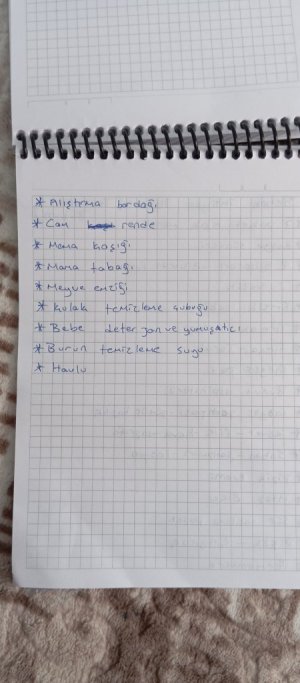 * Alıştırma bardağı
* Cam rende
* Mama kaşığı
* Mama tabağı
* Meyve emziği
* Kulak temizleme çubuğu
* Bebe deterjan ve yumuşatıcı
* Burun temizleme suyu
* Havlu